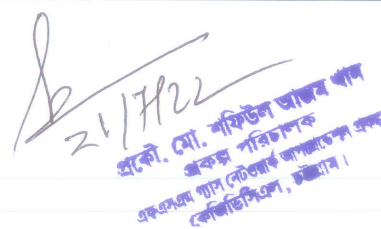 21/7/22
প্রকৌ. মো. শফিউল আজম খান
প্রকল্প পরিচালক
গ্যাস নেটওয়ার্ক আপগ্রেডেশন প্রকল্প
কেজিডিসিএল, চট্টগ্রাম।